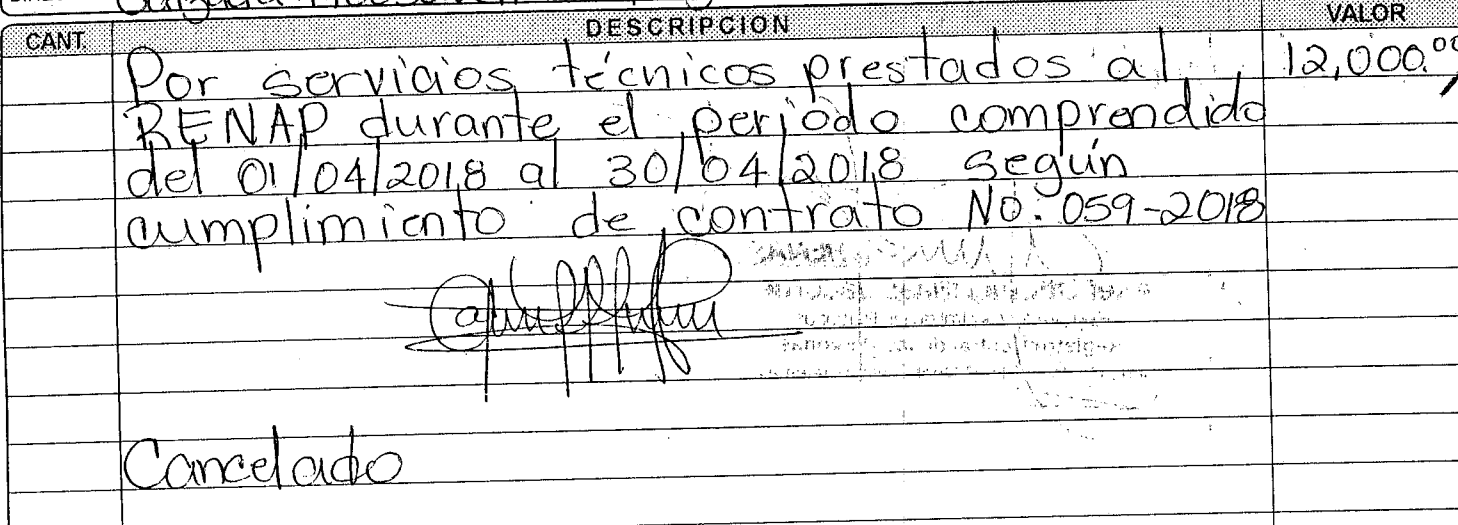 Calzada Roosevelt
CANT. DESCRIPCION VALOR
Por servicios técnicos prestados al 12,000.00
RENAP durante el periodo comprendido
del 01/04/2018 al 30/04/2018 según
cumplimiento de contrato No. 059-2018
Cancelado